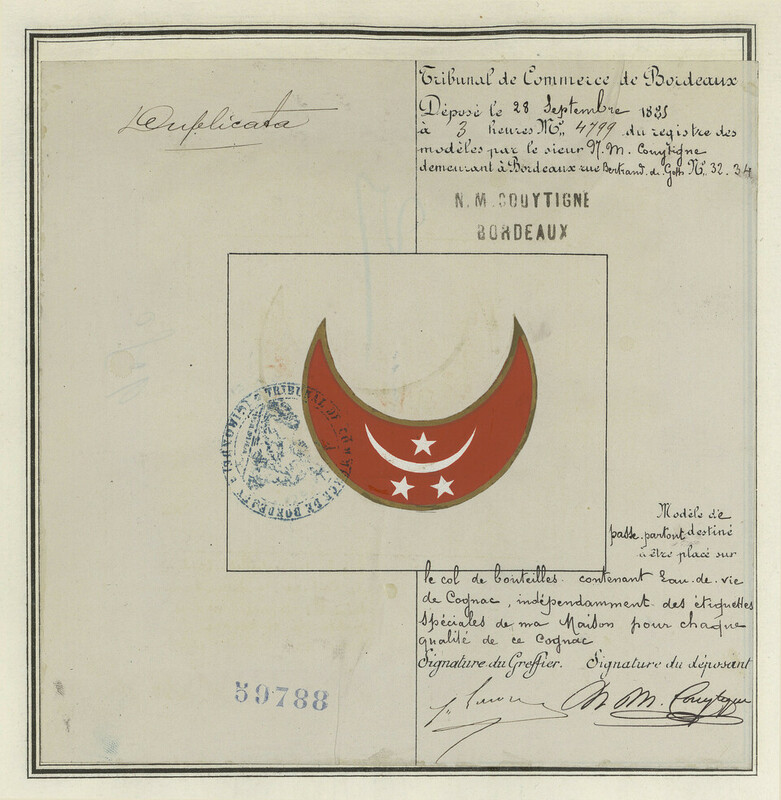 Duplicata
Tribunal de Commerce de Bordeaux
Déposé le 28 Septembre
à 3 heures Nº 4799 du registre des
modèles par le sieur N. M. Couytigne
demeurant à Bordeaux rue Bertrand de Goth Nº 32.34
N. M. COUYTIGNE
BORDEAUX
TRIBUNAL DE COMMERCE DE BORDEAUX
Modèle de
passe-partout destiné
à être placé sur
le col de bouteilles contenant Eau-de-vie
de Cognac, indépendamment des étiquettes
spéciales de ma Maison pour chaque
qualité de ce Cognac
Signature du Greffier. Signature du déposant
N. M. Couytigne
59788